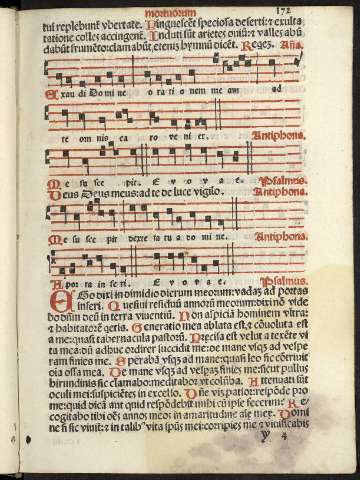 mortuorum 172
tui replebunt̃ vbertate. Pinguescẽt speciosa deserti: ⁊ exulta
tatione colles accingent̃. Induti sũt arietes oniũ: ⁊ valles abũ
dabũt frumẽto: clamabũt, etenĩ hymnũ dicẽt. Regẽ. Aña.
Exau di Domi ne o ra ti o nem me am ad
te om nis ca ro ve ni et. Antiphona.
Me su sce pit. E v o v a e. Psalmus.
Deus Deus meus: ad te de luce vigilo. Antiphona.
Me su sce pit dexte ra tu a do mi ne. Antiphona.
A por ta in fe ri. E v o v a e. Psalmus.
EGo dixi in dimidio dierum meorum: vadaȝ ad portas
inferi. Quesiui residuũ annorũ meorum: dixi nõ vide
bo dñm deũ in terra viuentiũ. Non aspiciã hominem vltra:
⁊ habitatorẽ q̃etis. Generatio mea ablata est: ⁊ cõuoluta est
a me: quasi tabernacula pastorũ. Precisa est velut a texẽte vi
ta mea: dũ adhuc ordirer succidit me: de mane vsqȝ ad vespe
ram finies me. Sperabã vsqȝ ad mane: quasi leo sic cõtriuit
oia ossa mea. De mane vsqȝ ad vesperã finies me: sicut pullus
hirundinis sic clamabo: meditabor vt colũba. Attenuati sũt
oculi mei: suspiciẽtes in excelso. Dñe vim patior: respõde pro
me: quid dicã aut quid respõdebit mihi cũ ipse fecerim. Re
cogitabo tibi oẽs annos meos in amaritudine aĩe mee. Domi
ne si sic viuit̃: ⁊ in talibꝰ vita spũs mei: corripies me ⁊ viuificabis
y 4